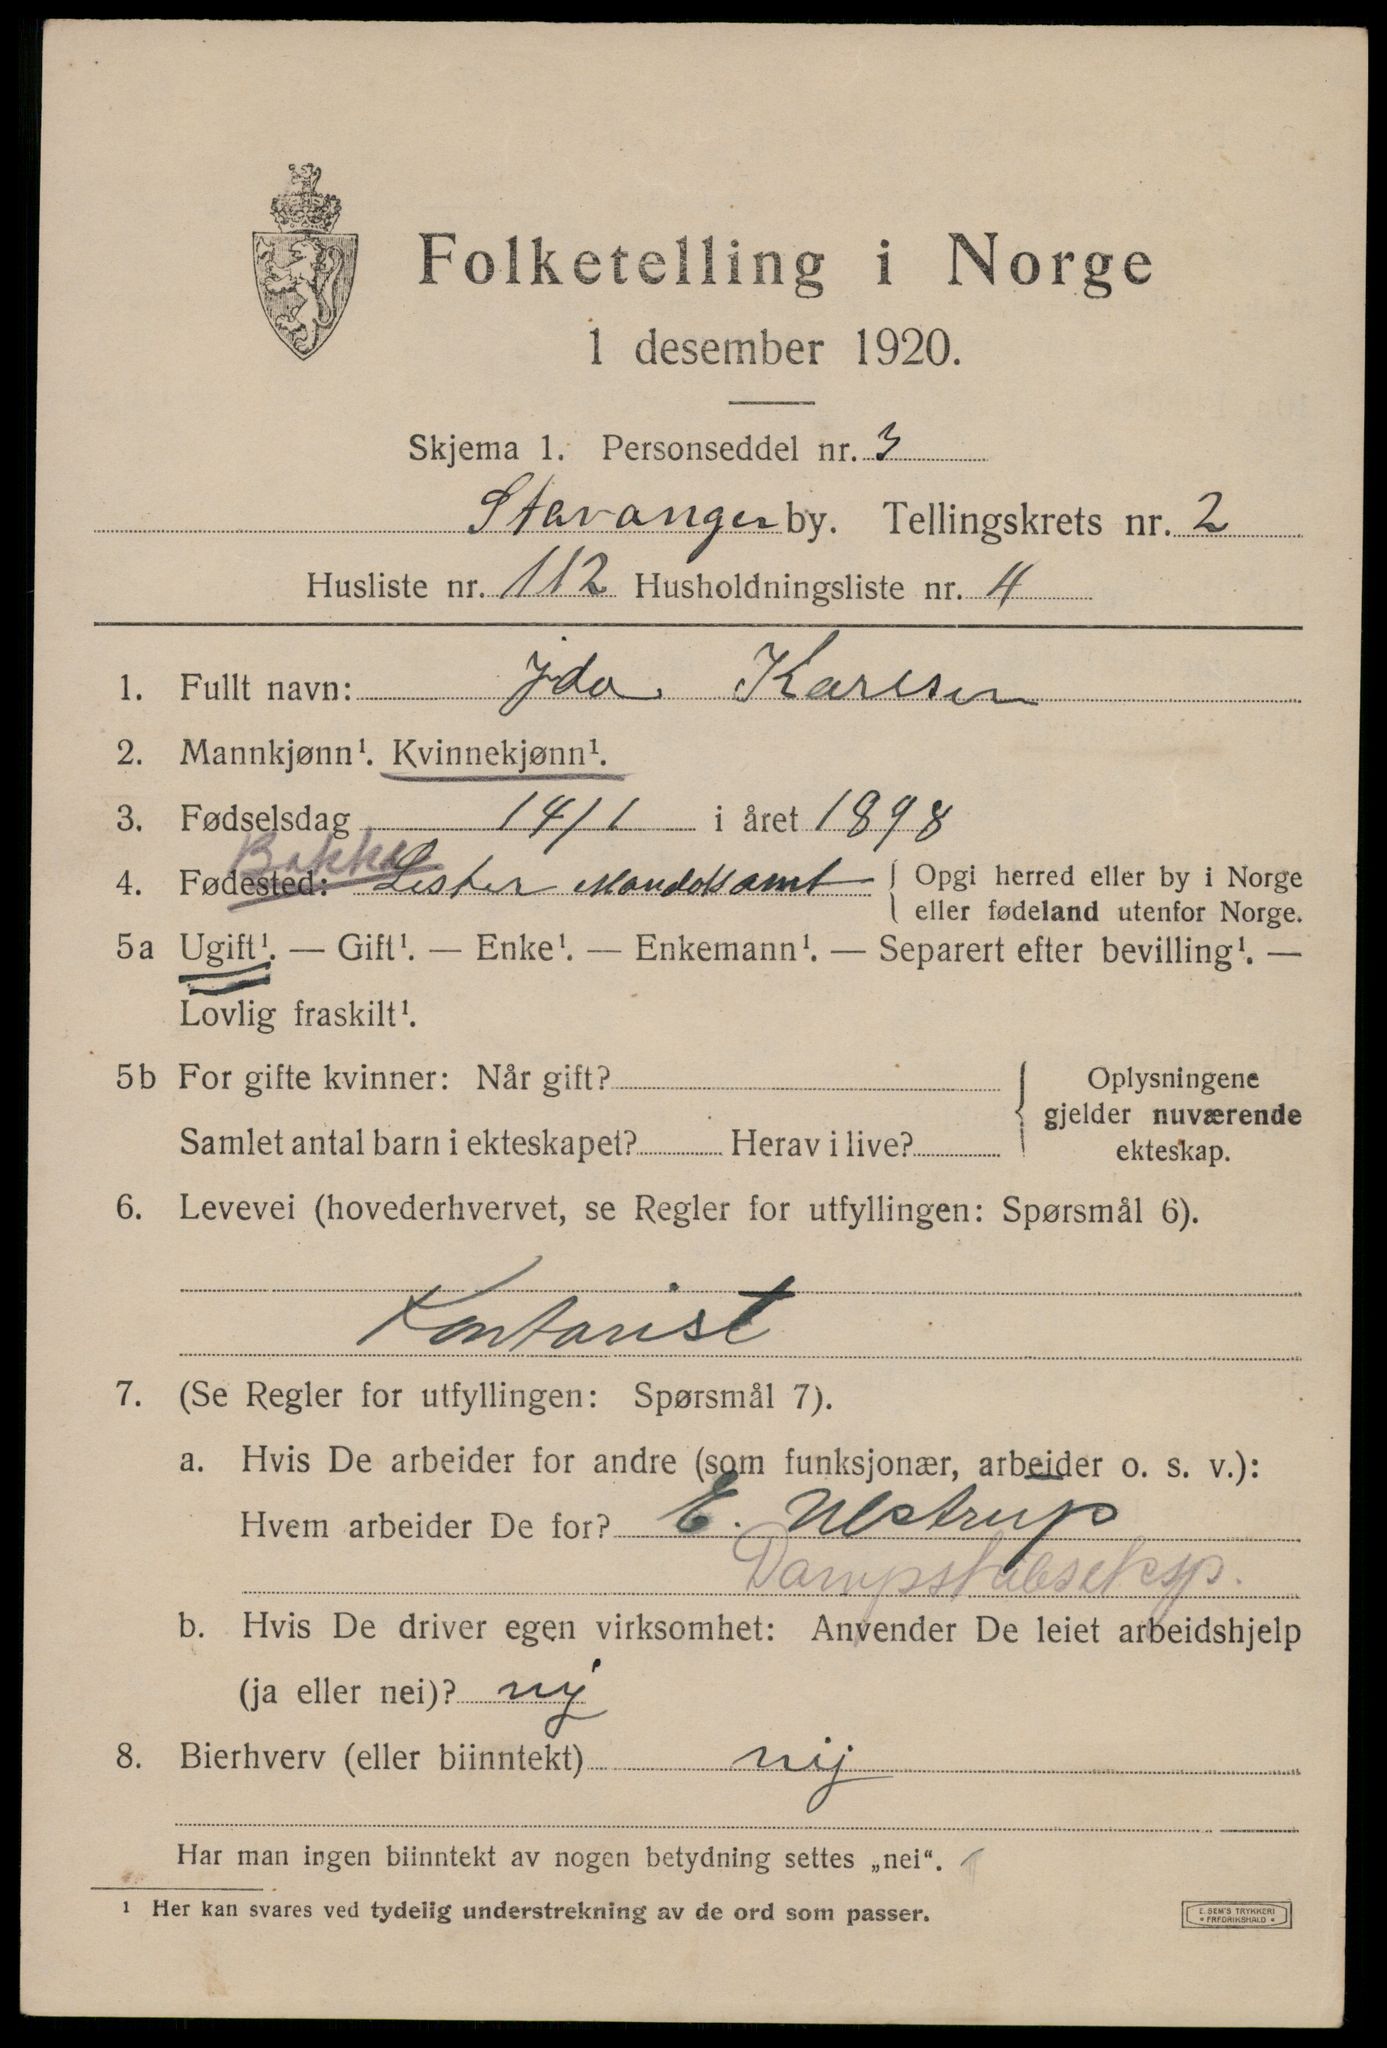 Folketelling i Norge
1 desember 1920.
Skjema 1. Personseddel nr. 3
Stavanger by. Tellingskrets nr. 2
Husliste nr. 112 Husholdningsliste nr. 4
1. Fullt navn: Ida Karlsen
2. Mannkjønn¹. Kvinnekjønn¹.
3. Fødselsdag 14/1 i året 1898
Bakke
4. Fødested: Lister Mandals amt { Opgi herred eller by i Norge
eller fødeland utenfor Norge.
5a Ugift¹. — Gift¹. — Enke¹. — Enkemann¹. — Separert efter bevilling¹. —
Lovlig fraskilt¹.
5b For gifte kvinner: Når gift?
Samlet antal barn i ekteskapet? Herav i live?
Oplysningene
gjelder nuværende
ekteskap.
6. Levevei (hovederhvervet, se Regler for utfyllingen: Spørsmål 6).
Kontorist
7. (Se Regler for utfyllingen: Spørsmål 7).
a. Hvis De arbeider for andre (som funksjonær, arbeider o. s. v.):
Hvem arbeider De for? E. Ulstrup
Dampskibseksp.
b. Hvis De driver egen virksomhet: Anvender De leiet arbeidshjelp
(ja eller nei)? nij
8. Bierhverv (eller biinntekt) nij
Har man ingen biinntekt av nogen betydning settes „nei".
¹ Her kan svares ved tydelig understrekning av de ord som passer.
E. SEM'S TRYKKERI
* FREDRIKSHALD *